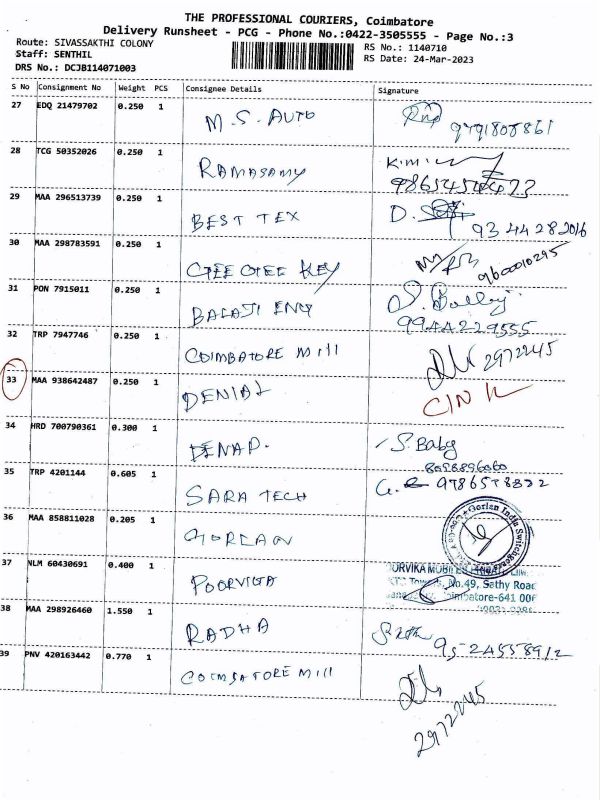 THE PROFESSIONAL COURIERS, Coimbatore
Delivery Runsheet - PCG - Phone No.:0422-3505555 - Page No.:3
Route: SIVASSAKTHI COLONY
Staff: SENTHIL
DRS No.: DCJB114071003
RS No.: 1140710
RS Date: 24-Mar-2023
S No Consignment No Weight PCS Consignee Details Signature
27 EDQ 21479702 0.250 1 M.S. AUTO 9791808861
28 TCG 50352026 0.250 1 RAMASAMY
29 MAA 296513739 0.250 1 BEST TEX D. 9344282016
30 MAA 298783591 0.250 1 GEE GEE KEY 9600010295
31 PON 7915011 0.250 1 BALAJI ENG S. Balaji
9944229555
32 TRP 7947746 0.250 1 COIMBATORE MIll 2972245
33 MAA 938642487 0.250 1 DENIAL
34 HRD 700790361 0.300 1 DENAP. S. Baby
8098896060
35 TRP 4201144 0.605 1 SARA TECH G. 9786578322
36 MAA 858811028 0.205 1 GORLAN Gorlan India Switchgear
37 NLM 60430691 0.400 1 POORVIKA
No.49, Sathy Road
Coimbatore-641 006
38 MAA 298926460 1.550 1 RADHA 9524558912
39 PNV 420163442 0.770 1 COIMBATORE MIll
2972245